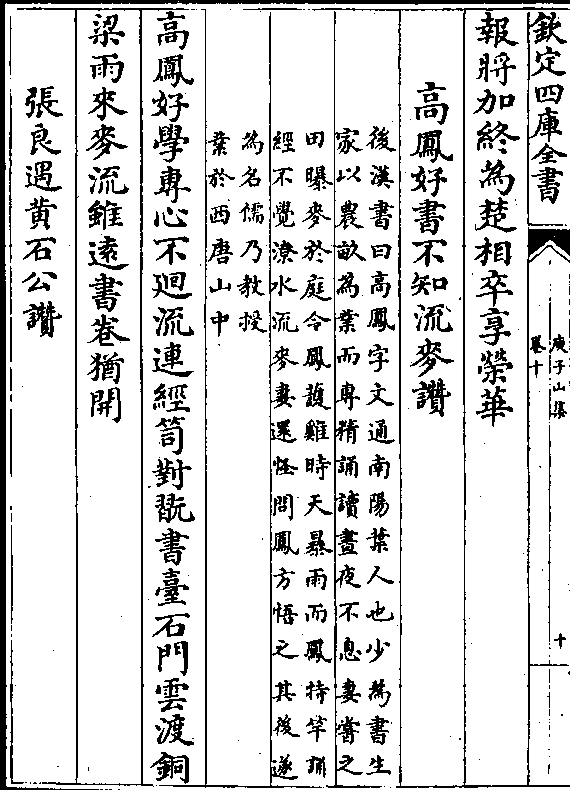 欽定四庫全書
庾子山集
卷十
十
報將加終為楚相卒享榮華
高鳳好書不知流麥讚
後漢書曰高鳳字文通南陽葉人也少為書生
家以農畝為業而專精誦讀晝夜不息妻嘗之
田曝麥於庭令鳳護雞時天暴雨而鳳持竿誦
經不覺潦水流麥妻還怪問鳳方悟之其後遂
為名儒乃教授
業於西唐山中
高鳳好學專心不廻流連經笥對翫書臺石門雲渡銅
梁雨來麥流雖遠書卷猶開
張良遇黄石公讚